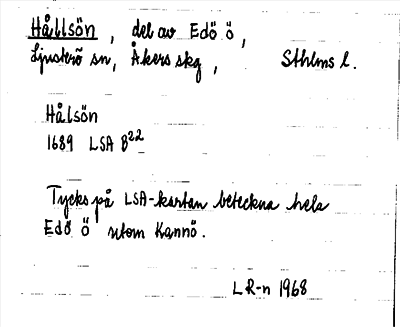 Hållsön, del av Edö ö,
Ljusterö sn, Åkers skg, Sthlms l.
Hålsön
1689 LSA B22
Tycks på LSA-kartan beteckna hela
Edö ö utom Kannö.
LR-n 1968